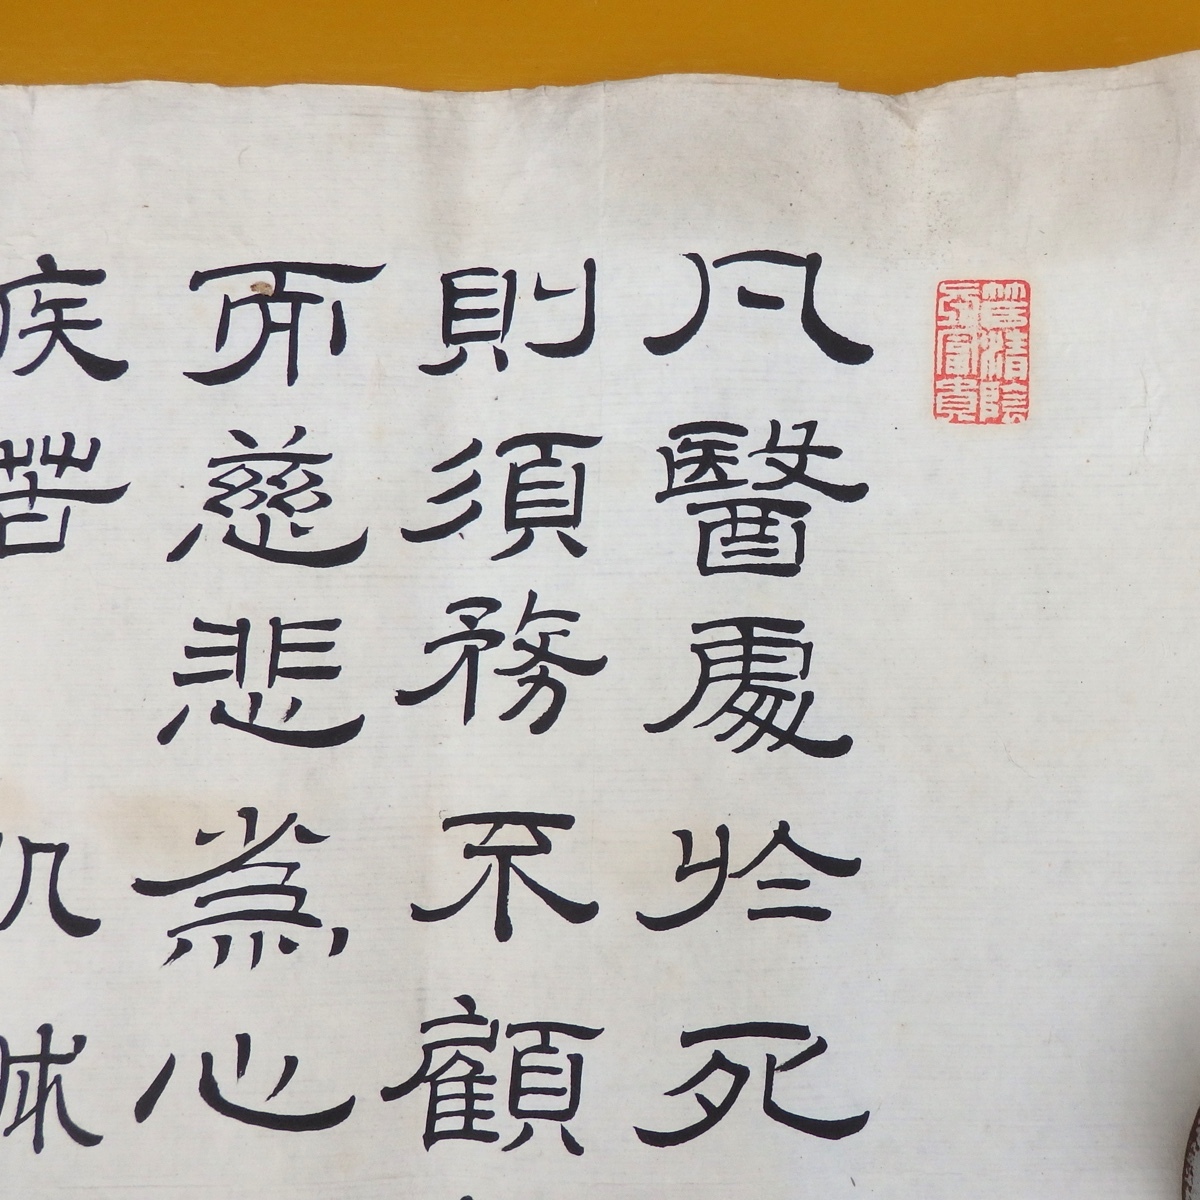 凡醫處於死
則須務不顧
而慈悲為心
疾苦